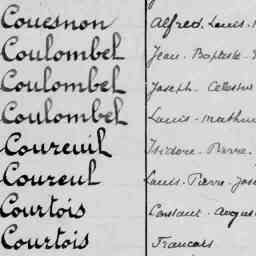 Couesnon Alfred. Louis.
Coulombel Jean. Baptiste.
Coulombel Joseph. Célestin
Coulombel Louis. Mathurin
Coureuil Isidore. Pierre.
Coureul Louis. Pierre. Jose
Courtois Constant. Augus
Courtois Francois